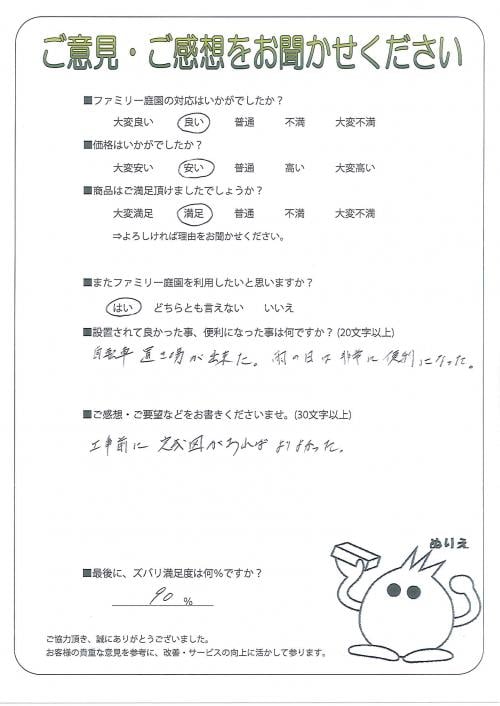 ご意見・ご感想をお聞かせください
■ファミリー庭園の対応はいかがでしたか？
大変良い 良い 普通 不満 大変不満
■価格はいかがでしたか？
大変安い 安い 普通 高い 大変高い
■商品はご満足頂けましたでしょうか？
大変満足 満足 普通 不満 大変不満
⇒よろしければ理由をお聞かせください。
■またファミリー庭園を利用したいと思いますか？
はい どちらとも言えない いいえ
■設置されて良かった事、便利になった事は何ですか？(20文字以上)
自転車置き場が出来た。雨の日は非常に便利になった。
■ご感想・ご要望などをお書きくださいませ。(30文字以上)
工事前に完成図があればよりよかった。
ぬりえ
■最後に、ズバリ満足度は何％ですか？
90 %
ご協力頂き、誠にありがとうございました。
お客様の貴重な意見を参考に、改善・サービスの向上に活かして参ります。